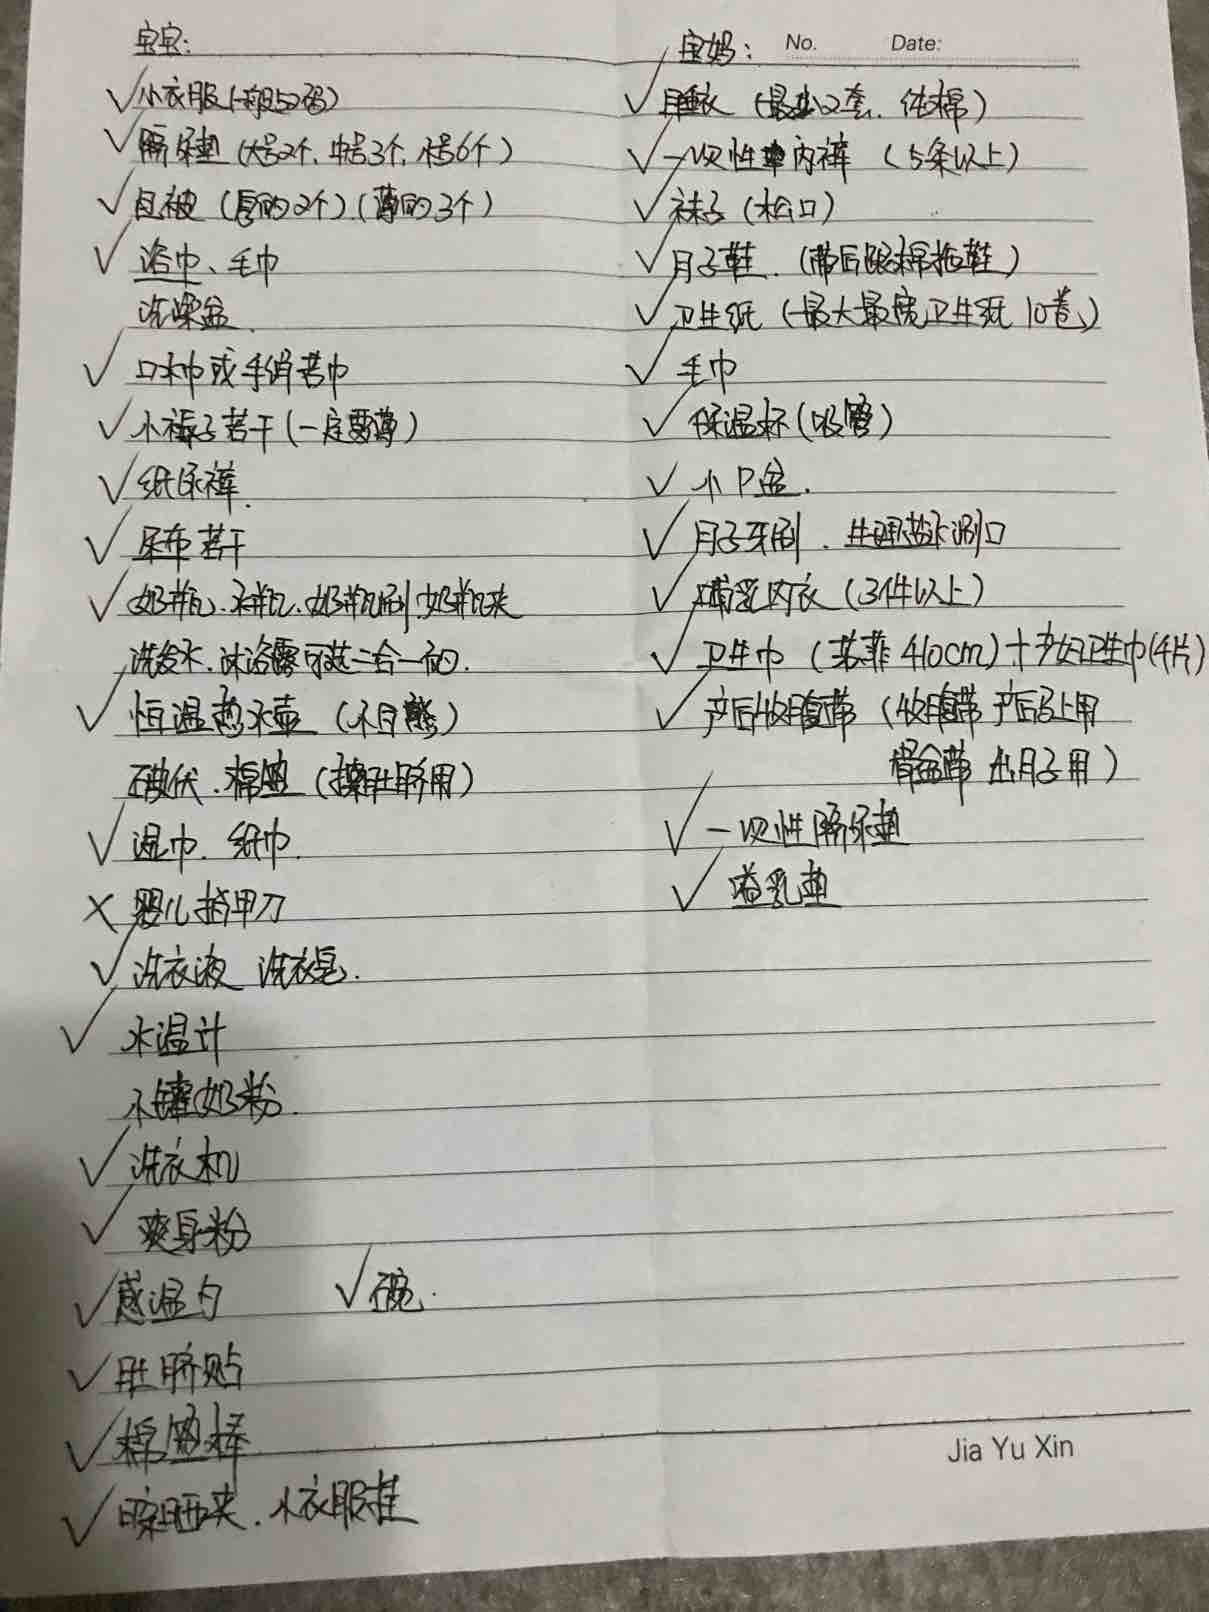 宝宝:
✓小衣服(一般52码)
✓隔尿垫(大号2个、中号3个、小号6个)
✓包被(厚的2个)(薄的3个)
✓浴巾、毛巾
洗澡盆.
✓口水巾或手绢若巾
✓小褥子若干(一定要薄)
✓纸尿裤.
✓尿布若干
✓奶瓶、水瓶、奶瓶刷、奶瓶夹
洗发水、沐浴露可选二合一的.
✓恒温热水壶(小白熊)
碘伏、棉签(擦肚脐用)
✓湿巾、纸巾.
×婴儿指甲刀
✓洗衣液 洗衣皂.
✓水温计
小罐奶粉.
✓洗衣机
✓爽身粉
✓感温勺 ✓碗.
✓肚脐贴
✓棉签棒
✓晾晒夹、小衣服挂
宝妈: No. Date:
✓睡衣(最少2套、纯棉)
✓一次性内裤(5条以上)
✓袜子(松口)
✓月子鞋.(带后跟棉拖鞋)
✓卫生纸(最大最宽卫生纸10卷)
✓毛巾
✓保温杯(吸管)
✓小P盆.
✓月子牙刷、生理盐水涮口
✓哺乳内衣(3件以上)
✓卫生巾(苏菲410cm)+产妇卫生巾(4片)
✓产后收腹带(收腹带产后马上用
骨盆带 出月子用)
✓一次性隔尿垫
✓溢乳垫
Jia Yu Xin